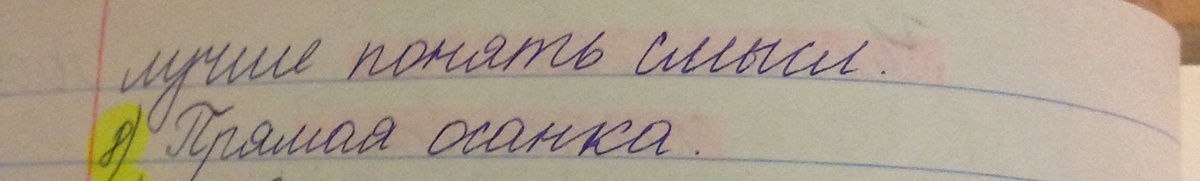 лучше понять смысл.
8) Прямая осанка.